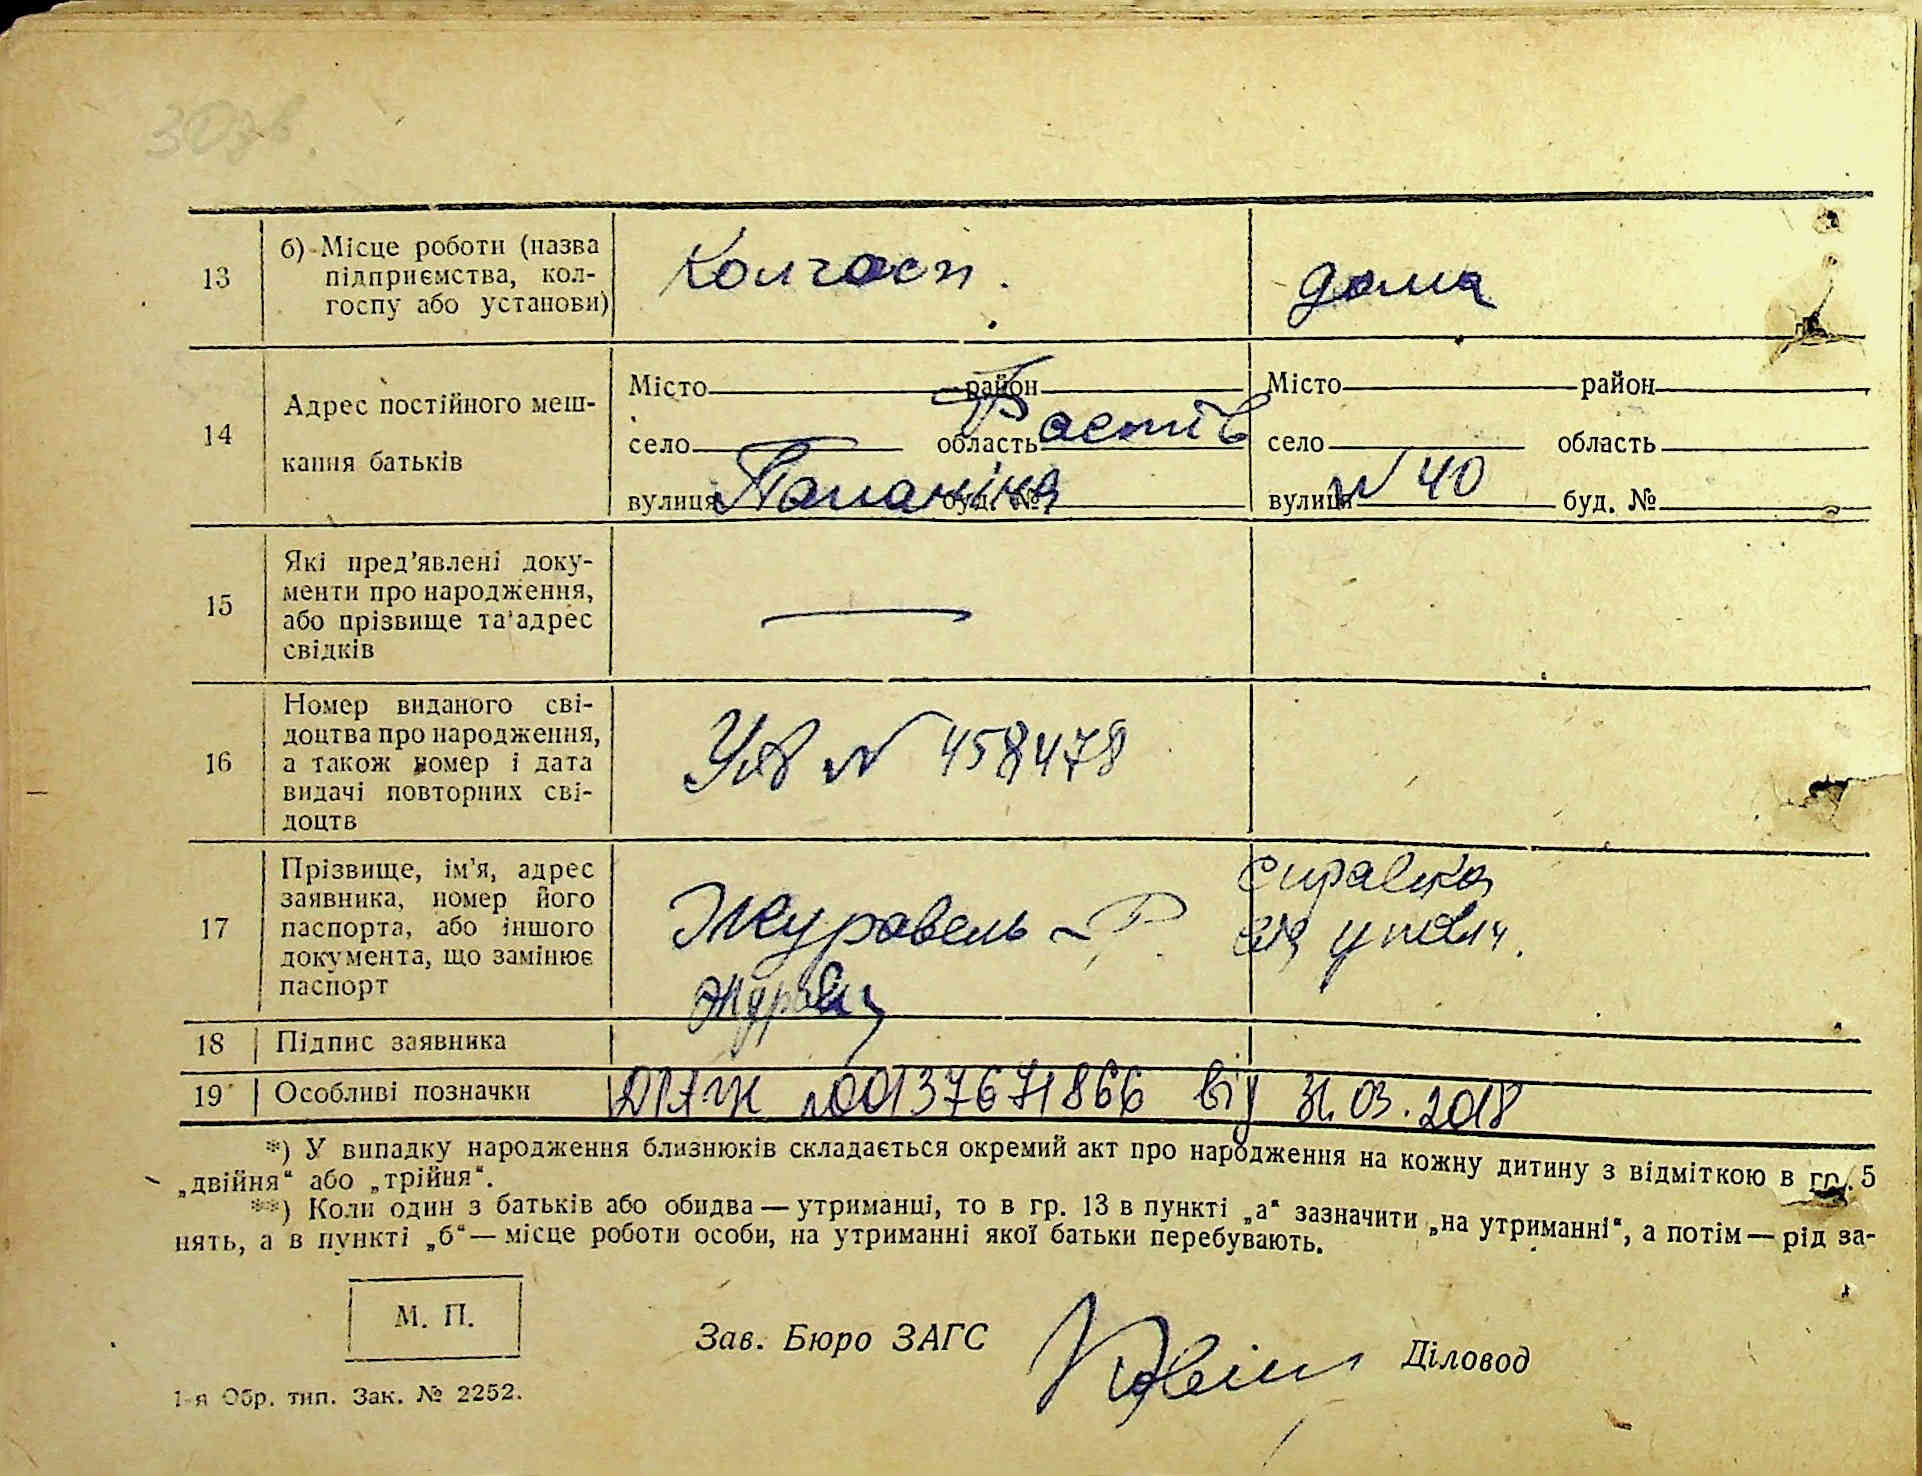 13
б) Місце роботи (назва
підприємства, кол-
госпу або установи)
Колгосп.
дома
14
Адрес постійного меш-
кання батьків
Місто район
село область
вулиця буд. №
Фастів
Папаніна
Місто район
село область
вулиця буд. №
N 40
15
Які пред'явлені доку-
менти про народження,
або прізвище та адрес
свідків
16
Номер виданого сві-
доцтва про народження,
а також номер і дата
видачі повторних сві-
доцтв
N 458478
17
Прізвище, ім'я, адрес
заявника, номер його
паспорта, або іншого
документа, що замінює
паспорт
Журавель
справка
18
Підпис заявника
19
Особливі позначки
№00137671866 від 31.03.2018
*) У випадку народження близнюків складається окремий акт про народження на кожну дитину з відміткою в гр. 5
„двійня“ або „трійня“.
**) Коли один з батьків або обидва — утриманці, то в гр. 13 в пункті „а“ зазначити „на утриманні“, а потім — рід за-
нять, а в пункті „б“ — місце роботи особи, на утриманні якої батьки перебувають.
М. П.
Зав. Бюро ЗАГС
Діловод
1-я Обр. тип. Зак. № 2252.